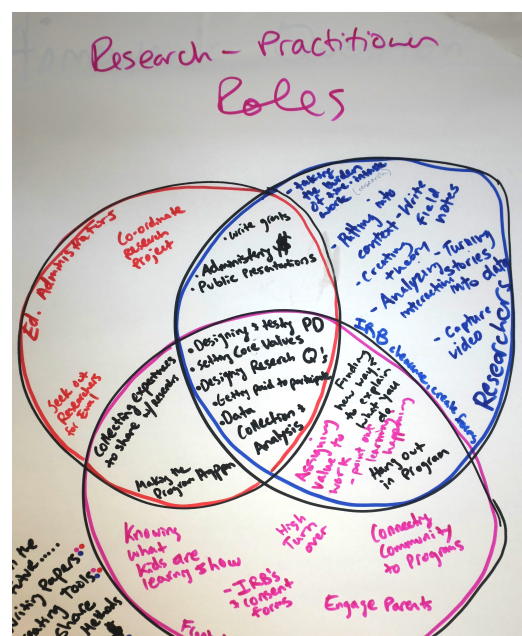 Research - Practitioner
Roles
Ed. Administrators
Co-ordinate
Research
Project
Seek out
Researchers
for Eval
• Write grants
• Administering $
• Public Presentations
- taking
the burden
of
work
- Putting into
context - Write
field
notes
- Creating
theory
- Analyzing
interactions
- Turning
stories
into data
- Capture
video
Researchers
IRB clearance, create forms
• Designing & testing PD
• Setting Core Values
• Designing Research Q's
• Getting paid to participate
• Data
Collection &
Analysis
Collecting experiences
to share w/
Making the
Program Happen
Finding
new ways
to explain
what you
see
Assigning
value to
work
- point out
learning
happening
Hang out
in Program
Knowing
what
kids are
learning & how
High
Turn
over
Connecting
Community
to Programs
- IRB's
& consent
forms
Engage Parents
the
future.....
writing Papers
creating Tools
share
Methods
$